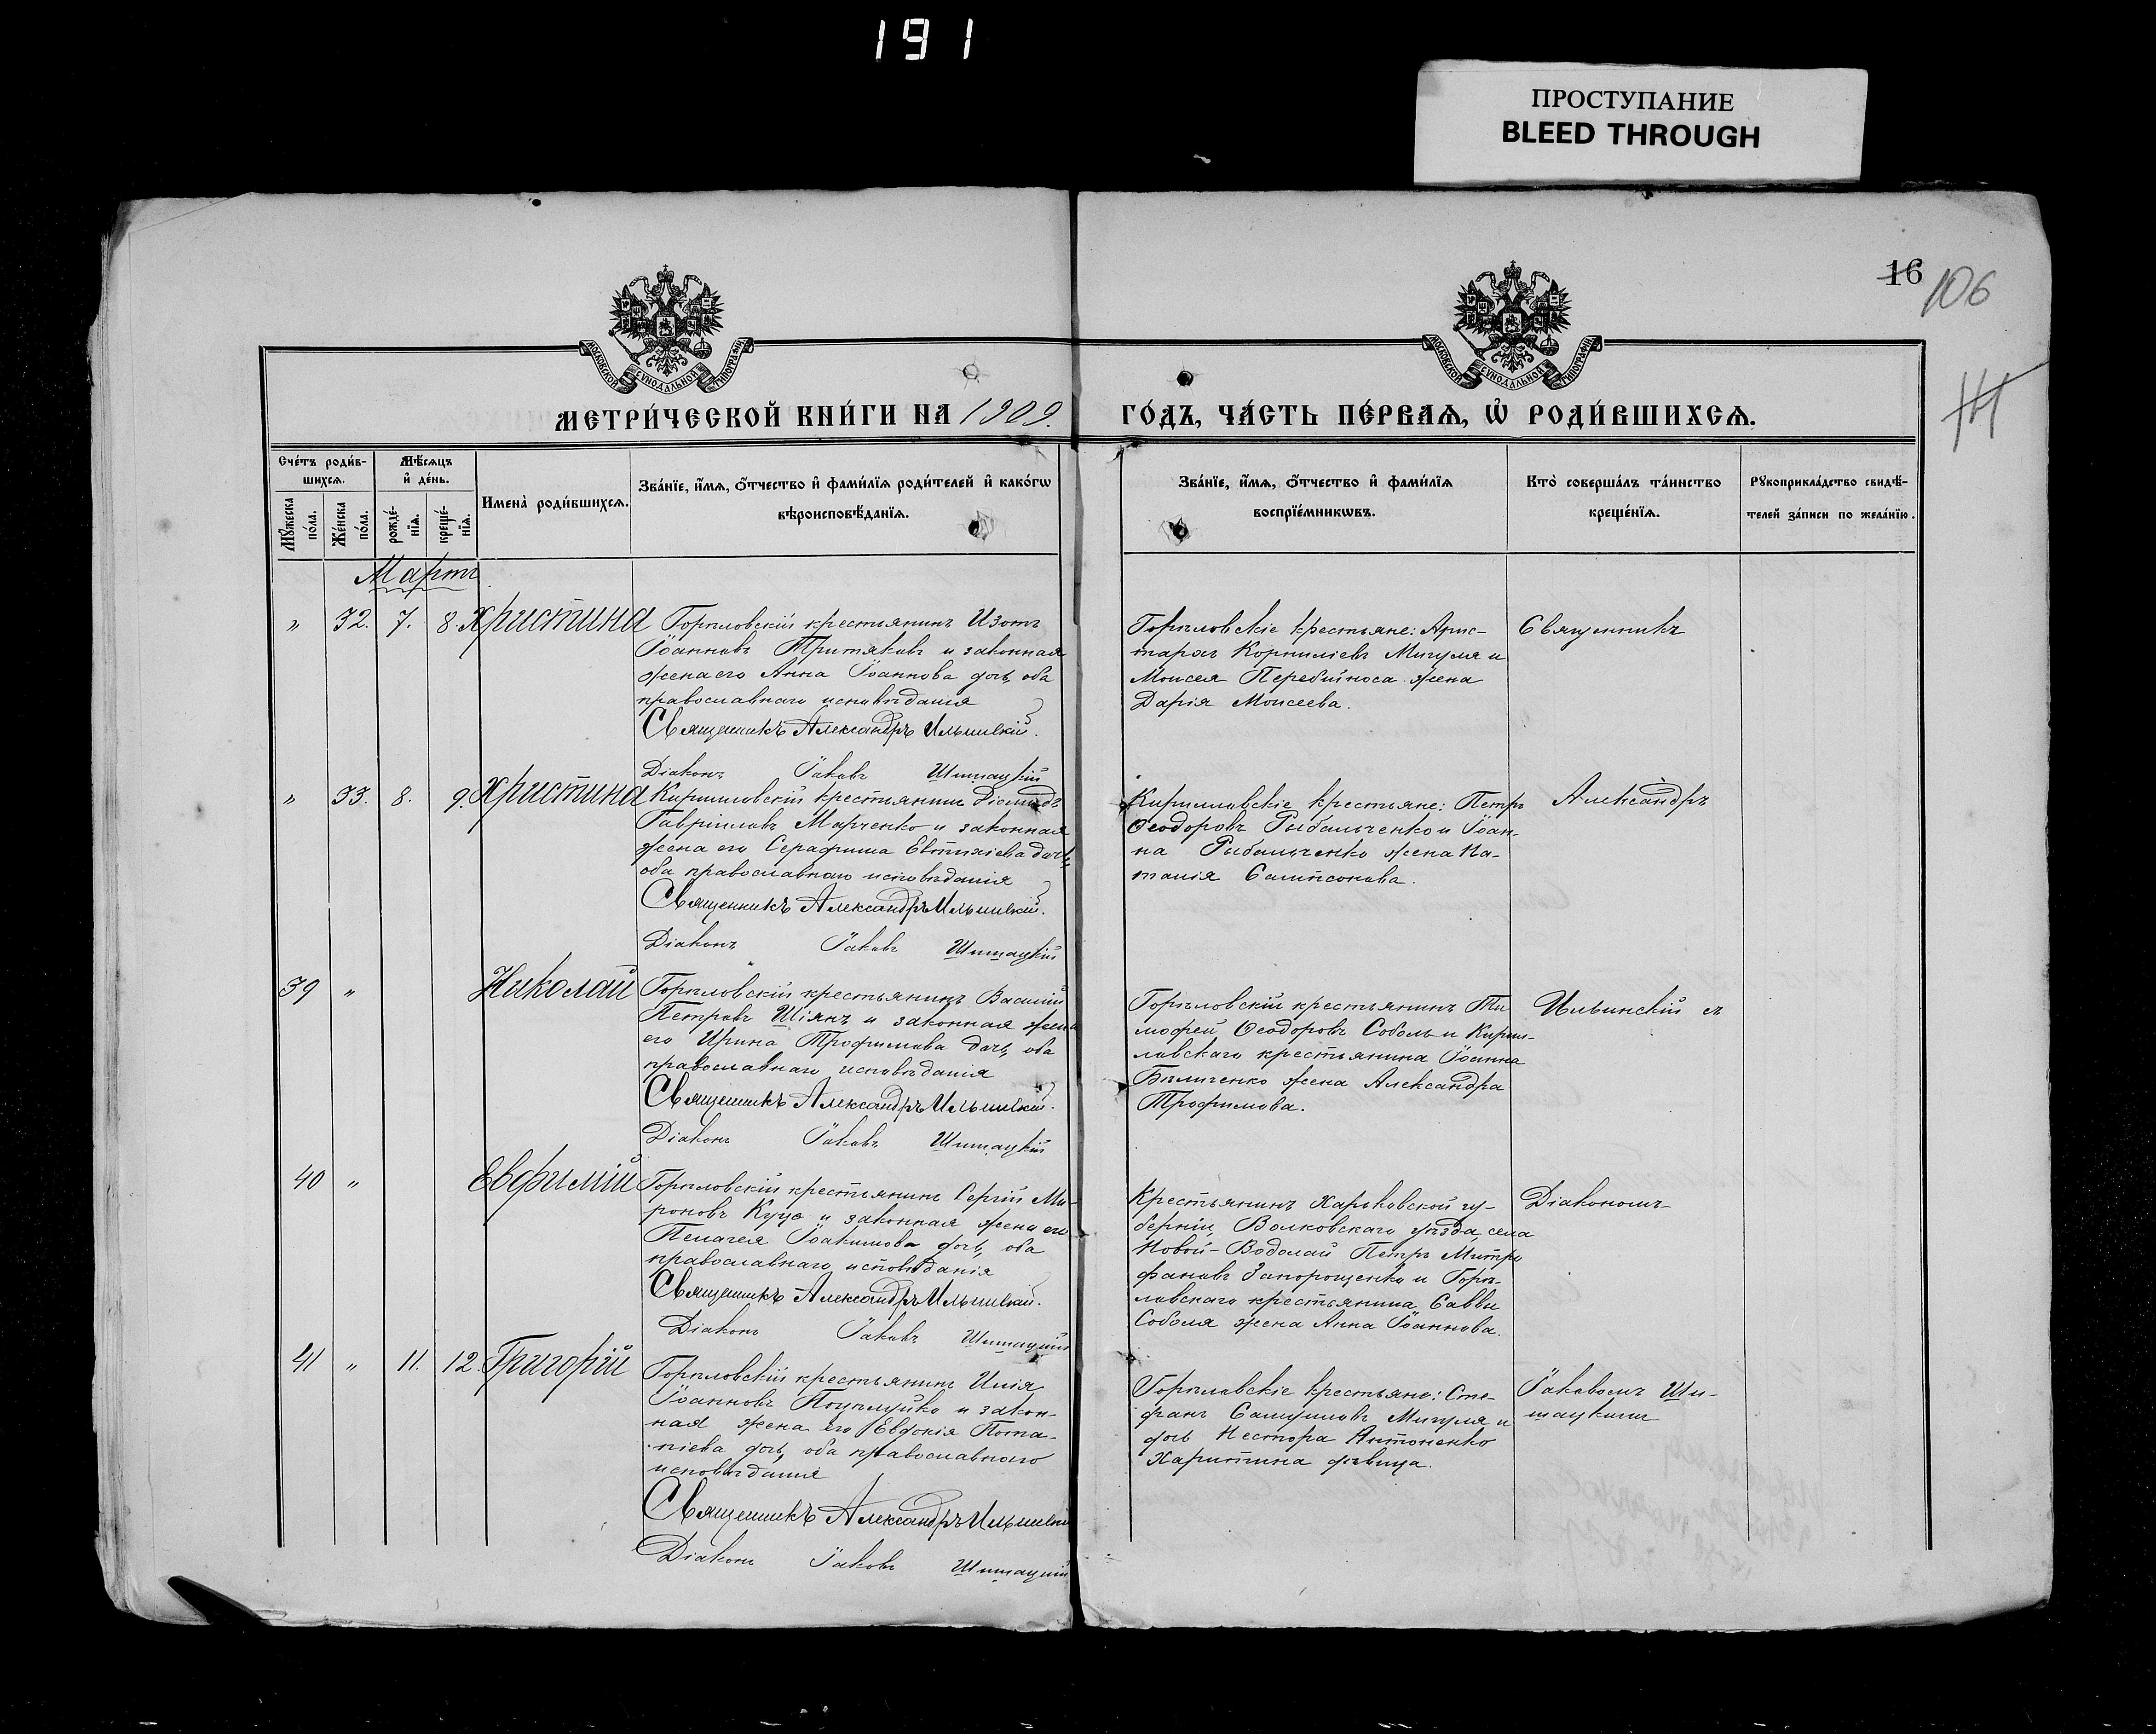 191
ПРОСТУПАНИЕ
BLEED THROUGH
16 106
МОСКОВСКОЙ СѴНОДАЛЬНОЙ ТИПОГРАФІИ
МОСКОВСКОЙ СѴНОДАЛЬНОЙ ТИПОГРАФІИ
МЕТРИ́ЧЕСКОЙ КНИ́ГИ НА 1909. ГО́ДЪ, ЧА́СТЬ ПЕ́РВАѦ, Ѡ҆ РОДИ́ВШИХСѦ.
Сче́тъ роди́в-
шихсѧ.
Мѣ́сѧцъ
и҆ де́нь.
Мꙋ́жеска
по́ла.
Же́нска
по́ла.
рожде́-
нїѧ.
креще́-
нїѧ.
Имена̀ роди́вшихсѧ.
Зва́нїе, и҆́мѧ, ѻ҆́тчество и҆ фами́лїѧ роди́телей и҆ како́гѡ
вѣроисповѣ́данїѧ.
Зва́нїе, и҆́мѧ, ѻ҆́тчество и҆ фами́лїѧ
воспрїе́мникѡвъ.
Кто̀ соверша́лъ та́инство
креще́нїѧ.
Рꙋкоприкла́дство свидѣ́-
телей за́писи по жела́нїю.
Мартъ
" 32. 7. 8. Христина
Горѣловскій крестьянинъ Изотъ
Іоанновъ Притяковъ и законная
жена его Анна Іоаннова дочь, оба
православнаго исповѣданія
Священникъ Александръ Ильинскій.
Діаконъ Іаковъ Шишацкій
Горѣловскіе крестьяне: Арис-
тархъ Корниліевъ Мигуля и
Моисея Перебийноса жена
Дарія Моисеева.
Священникъ
" 33. 8. 9. Христина
Кирилловскій крестьянинъ Діомидъ
Гавріиловъ Марченко и законная
жена его Серафима Евтихіева дочь,
оба православнаго исповѣданія
Священникъ Александръ Ильинскій.
Діаконъ Іаковъ Шишацкій
Кирилловскіе крестьяне: Петръ
Ѳеодоровъ Рыбальченко и Іоан-
на Рыбальченко жена На-
талія Сампсонова.
Александръ
39 " Николай
Горѣловскій крестьянинъ Василій
Петровъ Шіянъ и законная жена
его Ирина Трофимова дочь, оба
православнаго исповѣданія
Священникъ Александръ Ильинскій.
Діаконъ Іаковъ Шишацкій
Горѣловскій крестьянинъ Ти-
мофей Ѳеодоровъ Соболь и Кирил-
ловскаго крестьянина Іоанна
Бѣличенко жена Александра
Трофимова.
Ильинскій съ
40 " Евфимій
Горѣловскій крестьянинъ Сергій Ми-
роновъ Куцъ и законная жена его
Пелагея Іоакимова дочь, оба
православнаго исповѣданія
Священникъ Александръ Ильинскій.
Діаконъ Іаковъ Шишацкій
Крестьянинъ Харьковской гу-
берніи, Волковскаго уѣзда, села
Новой-Водолаи Петръ Митро-
фановъ Запорощенко и Горѣ-
ловскаго крестьянина Саввы
Соболя жена Анна Іоаннова.
Діакономъ
41 " 11. 12. Григорій
Горѣловскій крестьянинъ Илія
Іоанновъ Поцѣлуйко и закон-
ная жена его Евдокія Пота-
піева дочь, оба православнаго
исповѣданія
Священникъ Александръ Ильинскій
Діаконъ Іаковъ Шишацкій
Горѣловскіе крестьяне: Сте-
фанъ Самуиловъ Мигуля и
дочь Нестора Антоненко
Харитина дѣвица.
Іаковомъ Ши-
шацкимъ